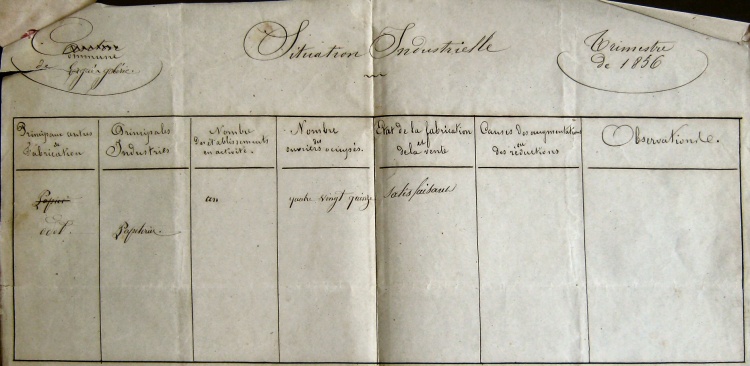 Canton
Commune
de Ergué-gabéric.
Situation Industrielle
Trimestre
de 1856
Principaux centres
de
Fabrication
Principales
Industries
Nombre
des établissements
en activité.
Nombre
des
ouvriers occupés.
Etat de la fabrication
et
de la vente
Causes des augmentations
ou
des réductions
Observations.
un
quatre vingt quinze
satisfaisant
odet.
Papeterie